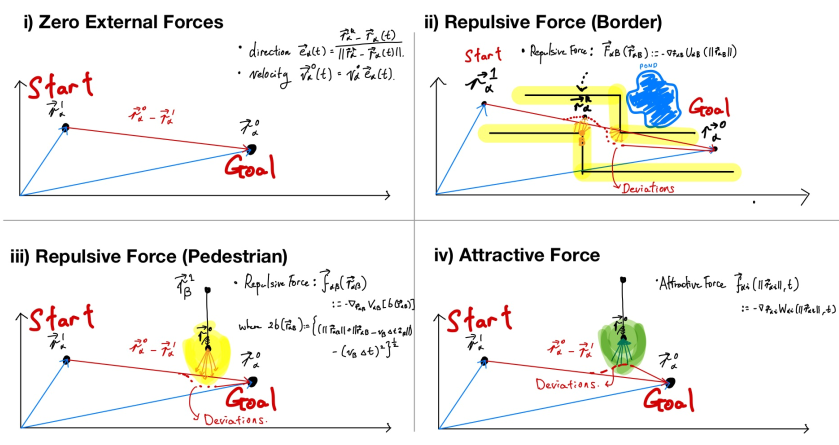 i) Zero External Forces
• direction e⃗α(t) = (r⃗αᵏ − r⃗α(t)) / ||r⃗αᵏ − r⃗α(t)||.
• velocity v⃗α⁰(t) = vα⁰ e⃗α(t).
Start
r⃗α¹
r⃗α⁰ − r⃗α¹
r⃗α⁰
Goal
ii) Repulsive Force (Border)
• Repulsive Force: F⃗αB(r⃗αB) := −∇r⃗αB UαB(||r⃗αB||)
Start
r⃗α¹
POND
r⃗αᵏ
Goal
r⃗α⁰
Deviations
iii) Repulsive Force (Pedestrian)
r⃗β¹
• Repulsive Force: f⃗αβ(r⃗αβ)
:= −∇r⃗αβ Vαβ[b(r⃗αβ)]
where 2b(r⃗αβ) := {(||r⃗αβ|| + ||r⃗αβ − vβ Δt e⃗β||)²
− (vβ Δt)²}^½
Start
r⃗α¹
r⃗α⁰ − r⃗α¹
r⃗α⁰
Goal
Deviations.
iv) Attractive Force
• Attractive Force f⃗αi(||r⃗αi||, t)
:= −∇r⃗αi Wαi(||r⃗αi||, t)
Start
r⃗α¹
r⃗α⁰ − r⃗α¹
r⃗α⁰
Deviations.
Goal